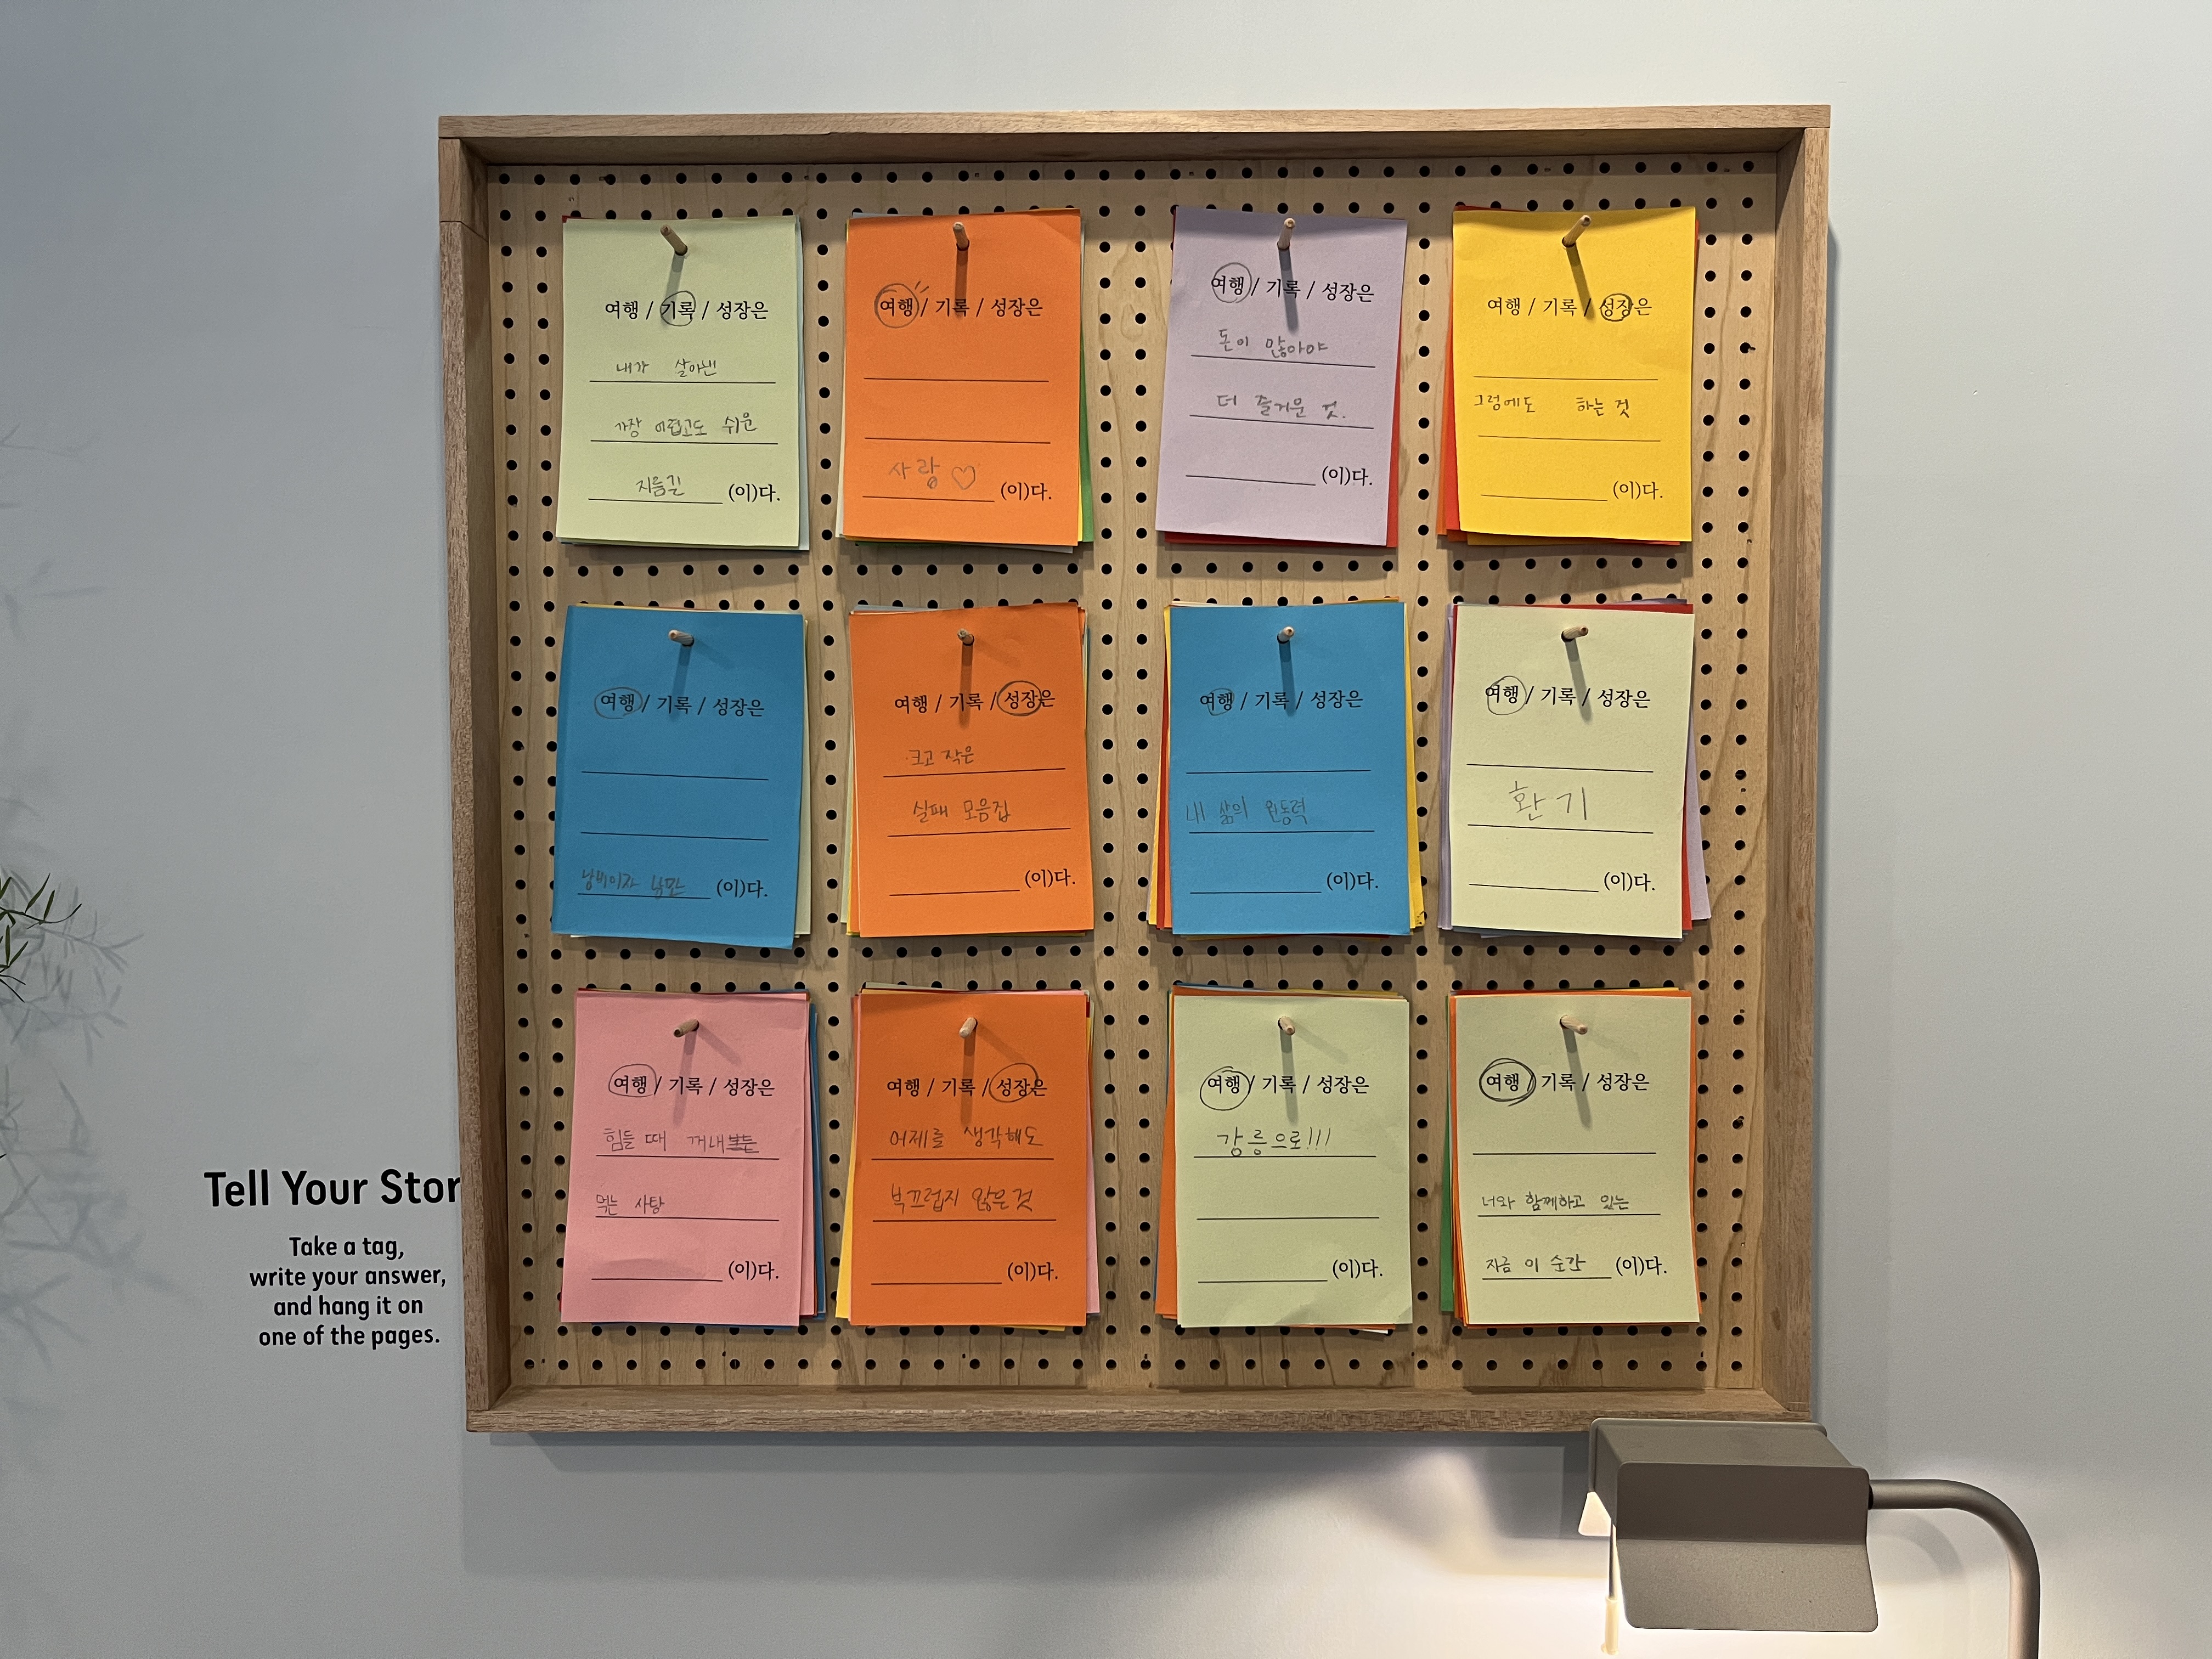 여행 / 기록 / 성장은
내가 살아낸
가장 어렵고도 쉬운
지름길 (이)다.
여행 / 기록 / 성장은
사랑♡ (이)다.
여행 / 기록 / 성장은
돈이 많아야
더 즐거운 것.
(이)다.
여행 / 기록 / 성장은
그럼에도 하는 것
(이)다.
여행 / 기록 / 성장은
낭비이자 낭만 (이)다.
여행 / 기록 / 성장은
크고 작은
실패 모음집
(이)다.
여행 / 기록 / 성장은
내 삶의 원동력
(이)다.
여행 / 기록 / 성장은
환기
(이)다.
여행 / 기록 / 성장은
힘들 때 꺼내
먹는 사탕
(이)다.
여행 / 기록 / 성장은
어제를 생각해도
부끄럽지 않은 것
(이)다.
여행 / 기록 / 성장은
강릉으로!!!
(이)다.
여행 / 기록 / 성장은
너와 함께하고 있는
지금 이 순간 (이)다.
Tell Your Stor
Take a tag,
write your answer,
and hang it on
one of the pages.